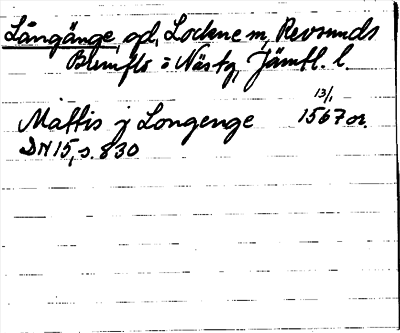 Långänge, gd, Lockne m, Revsunds
Brunflo o Näskn, Jämtl. l.
13/1
Mattis j Longenge 1567 or.
DN 15, s. 830